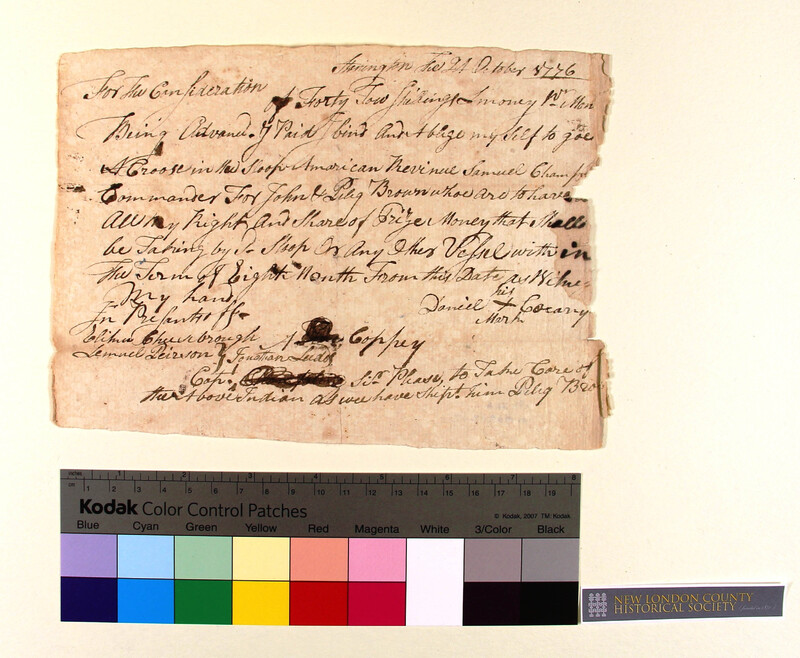 Stonington the 21 October 1776
For the Consideration
of Forty Tow Shillings money
Being Advanc.d Paid I bind And Oblige my Self to goe
A Croose in the Sloop American Revinue Samuel Champ
Commander For John & Peleg Brown whoe are to have
All my Right And Share of Prize Money that Shall
be Taking by Sd Sloop Or Any Other Vessel with in
the Term of Eight Month From this Date as Witne
My hand
his
Daniel X
Mark
In Presants off
Elihu Cheesbrough
A Coppey
Lemuel
Jonathan
Capt Sir Please to Take Care of
the Above Indian as we have Shipt him Peleg Bro
inches 1 2 3 4 5 6 7 8
cm 1 2 3 4 5 6 7 8 9 10 11 12 13 14 15 16 17 18 19
Kodak Color Control Patches
© Kodak, 2007 TM: Kodak
Blue Cyan Green Yellow Red Magenta White 3/Color Black
NEW LONDON COUNTY
HISTORICAL SOCIETY